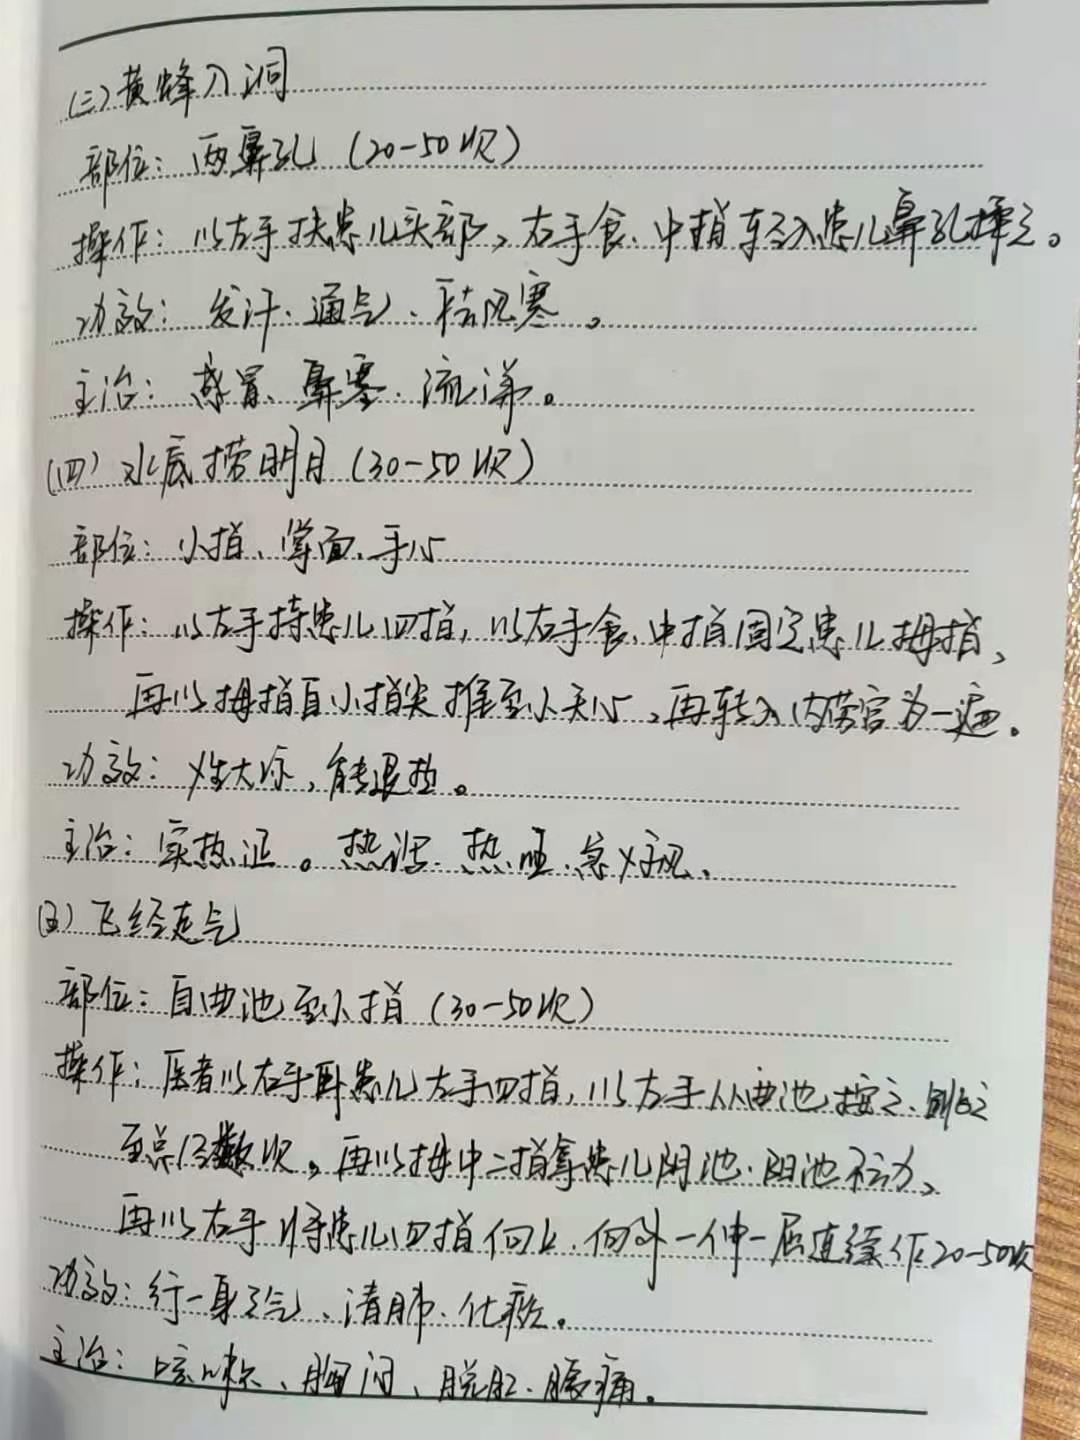 (三)黄蜂入洞
部位：两鼻孔（20-50次）
操作：以左手扶患儿头部，右手食、中指轻入患儿鼻孔揉之。
功效：发汗、通气、祛风寒。
主治：感冒、鼻塞、流涕。
(四)水底捞明月（30-50次）
部位：小指、掌面、手心
操作：以左手持患儿四指，以右手食、中指固定患儿拇指、
再以拇指自小指尖推至小天心，再转入内劳宫为一遍。
功效：性大凉，能退热。
主治：实热证。热 热 急惊风、
(五)飞经走气
部位：自曲池至小指（30-50次）
操作：医者以右手 患儿左手四指，以左手从曲池按之、
至总经数次，再以拇中二指拿患儿阴池、阳池不动、
再以右手将患儿四指向上、向外一伸一屈连续作20-50次
功效：行一身之气、清肺、化痰。
主治：咳嗽、胸闷、脱肛、 痛。